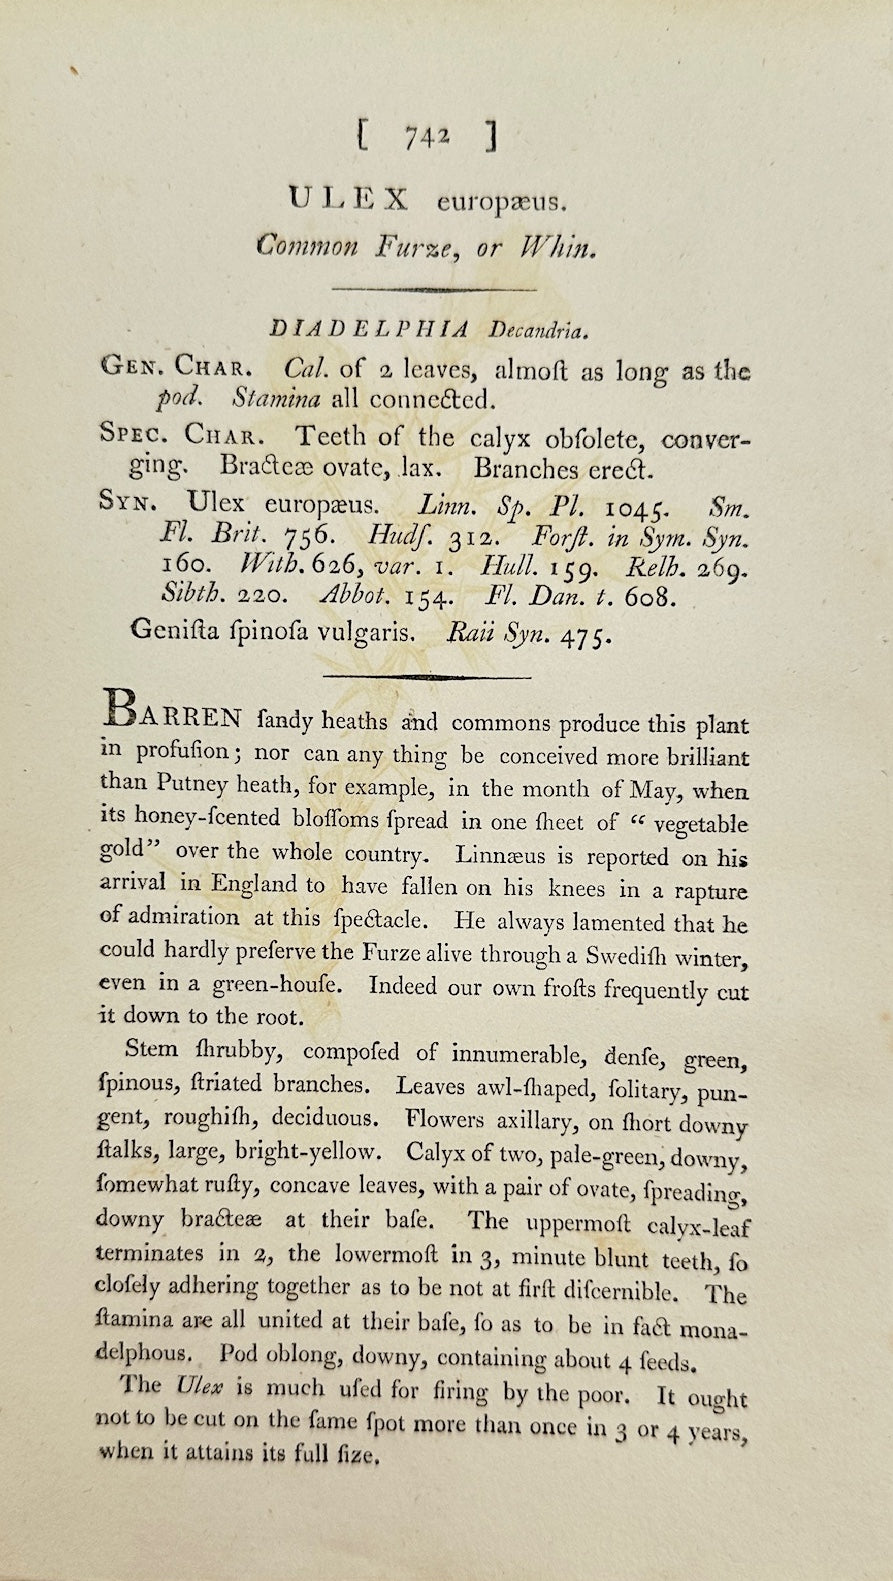 [ 742 ]
ULEX europæus.
Common Furze, or Whin.
DIADELPHIA Decandria.
GEN. CHAR. Cal. of 2 leaves, almoſt as long as the
pod. Stamina all connected.
SPEC. CHAR. Teeth of the calyx obſolete, conver-
ging. Bracteæ ovate, lax. Branches erect.
SYN. Ulex europæus. Linn. Sp. Pl. 1045. Sm.
Fl. Brit. 756. Hudſ. 312. Forſt. in Sym. Syn.
160. With. 626, var. 1. Hull. 159. Relh. 269.
Sibth. 220. Abbot. 154. Fl. Dan. t. 608.
Geniſta ſpinoſa vulgaris. Raii Syn. 475.
BARREN ſandy heaths and commons produce this plant
in profuſion; nor can any thing be conceived more brilliant
than Putney heath, for example, in the month of May, when
its honey-ſcented bloſſoms ſpread in one ſheet of “ vegetable
gold” over the whole country. Linnæus is reported on his
arrival in England to have fallen on his knees in a rapture
of admiration at this ſpectacle. He always lamented that he
could hardly preſerve the Furze alive through a Swediſh winter,
even in a green-houſe. Indeed our own froſts frequently cut
it down to the root.
Stem ſhrubby, compoſed of innumerable, denſe, green,
ſpinous, ſtriated branches. Leaves awl-ſhaped, ſolitary, pun-
gent, roughiſh, deciduous. Flowers axillary, on ſhort downy
ſtalks, large, bright-yellow. Calyx of two, pale-green, downy,
ſomewhat ruſty, concave leaves, with a pair of ovate, ſpreading,
downy bracteæ at their baſe. The uppermoſt calyx-leaf
terminates in 2, the lowermoſt in 3, minute blunt teeth, ſo
cloſely adhering together as to be not at firſt diſcernible. The
ſtamina are all united at their baſe, ſo as to be in fact mona-
delphous. Pod oblong, downy, containing about 4 ſeeds.
The Ulex is much uſed for firing by the poor. It ought
not to be cut on the ſame ſpot more than once in 3 or 4 years,
when it attains its full ſize.